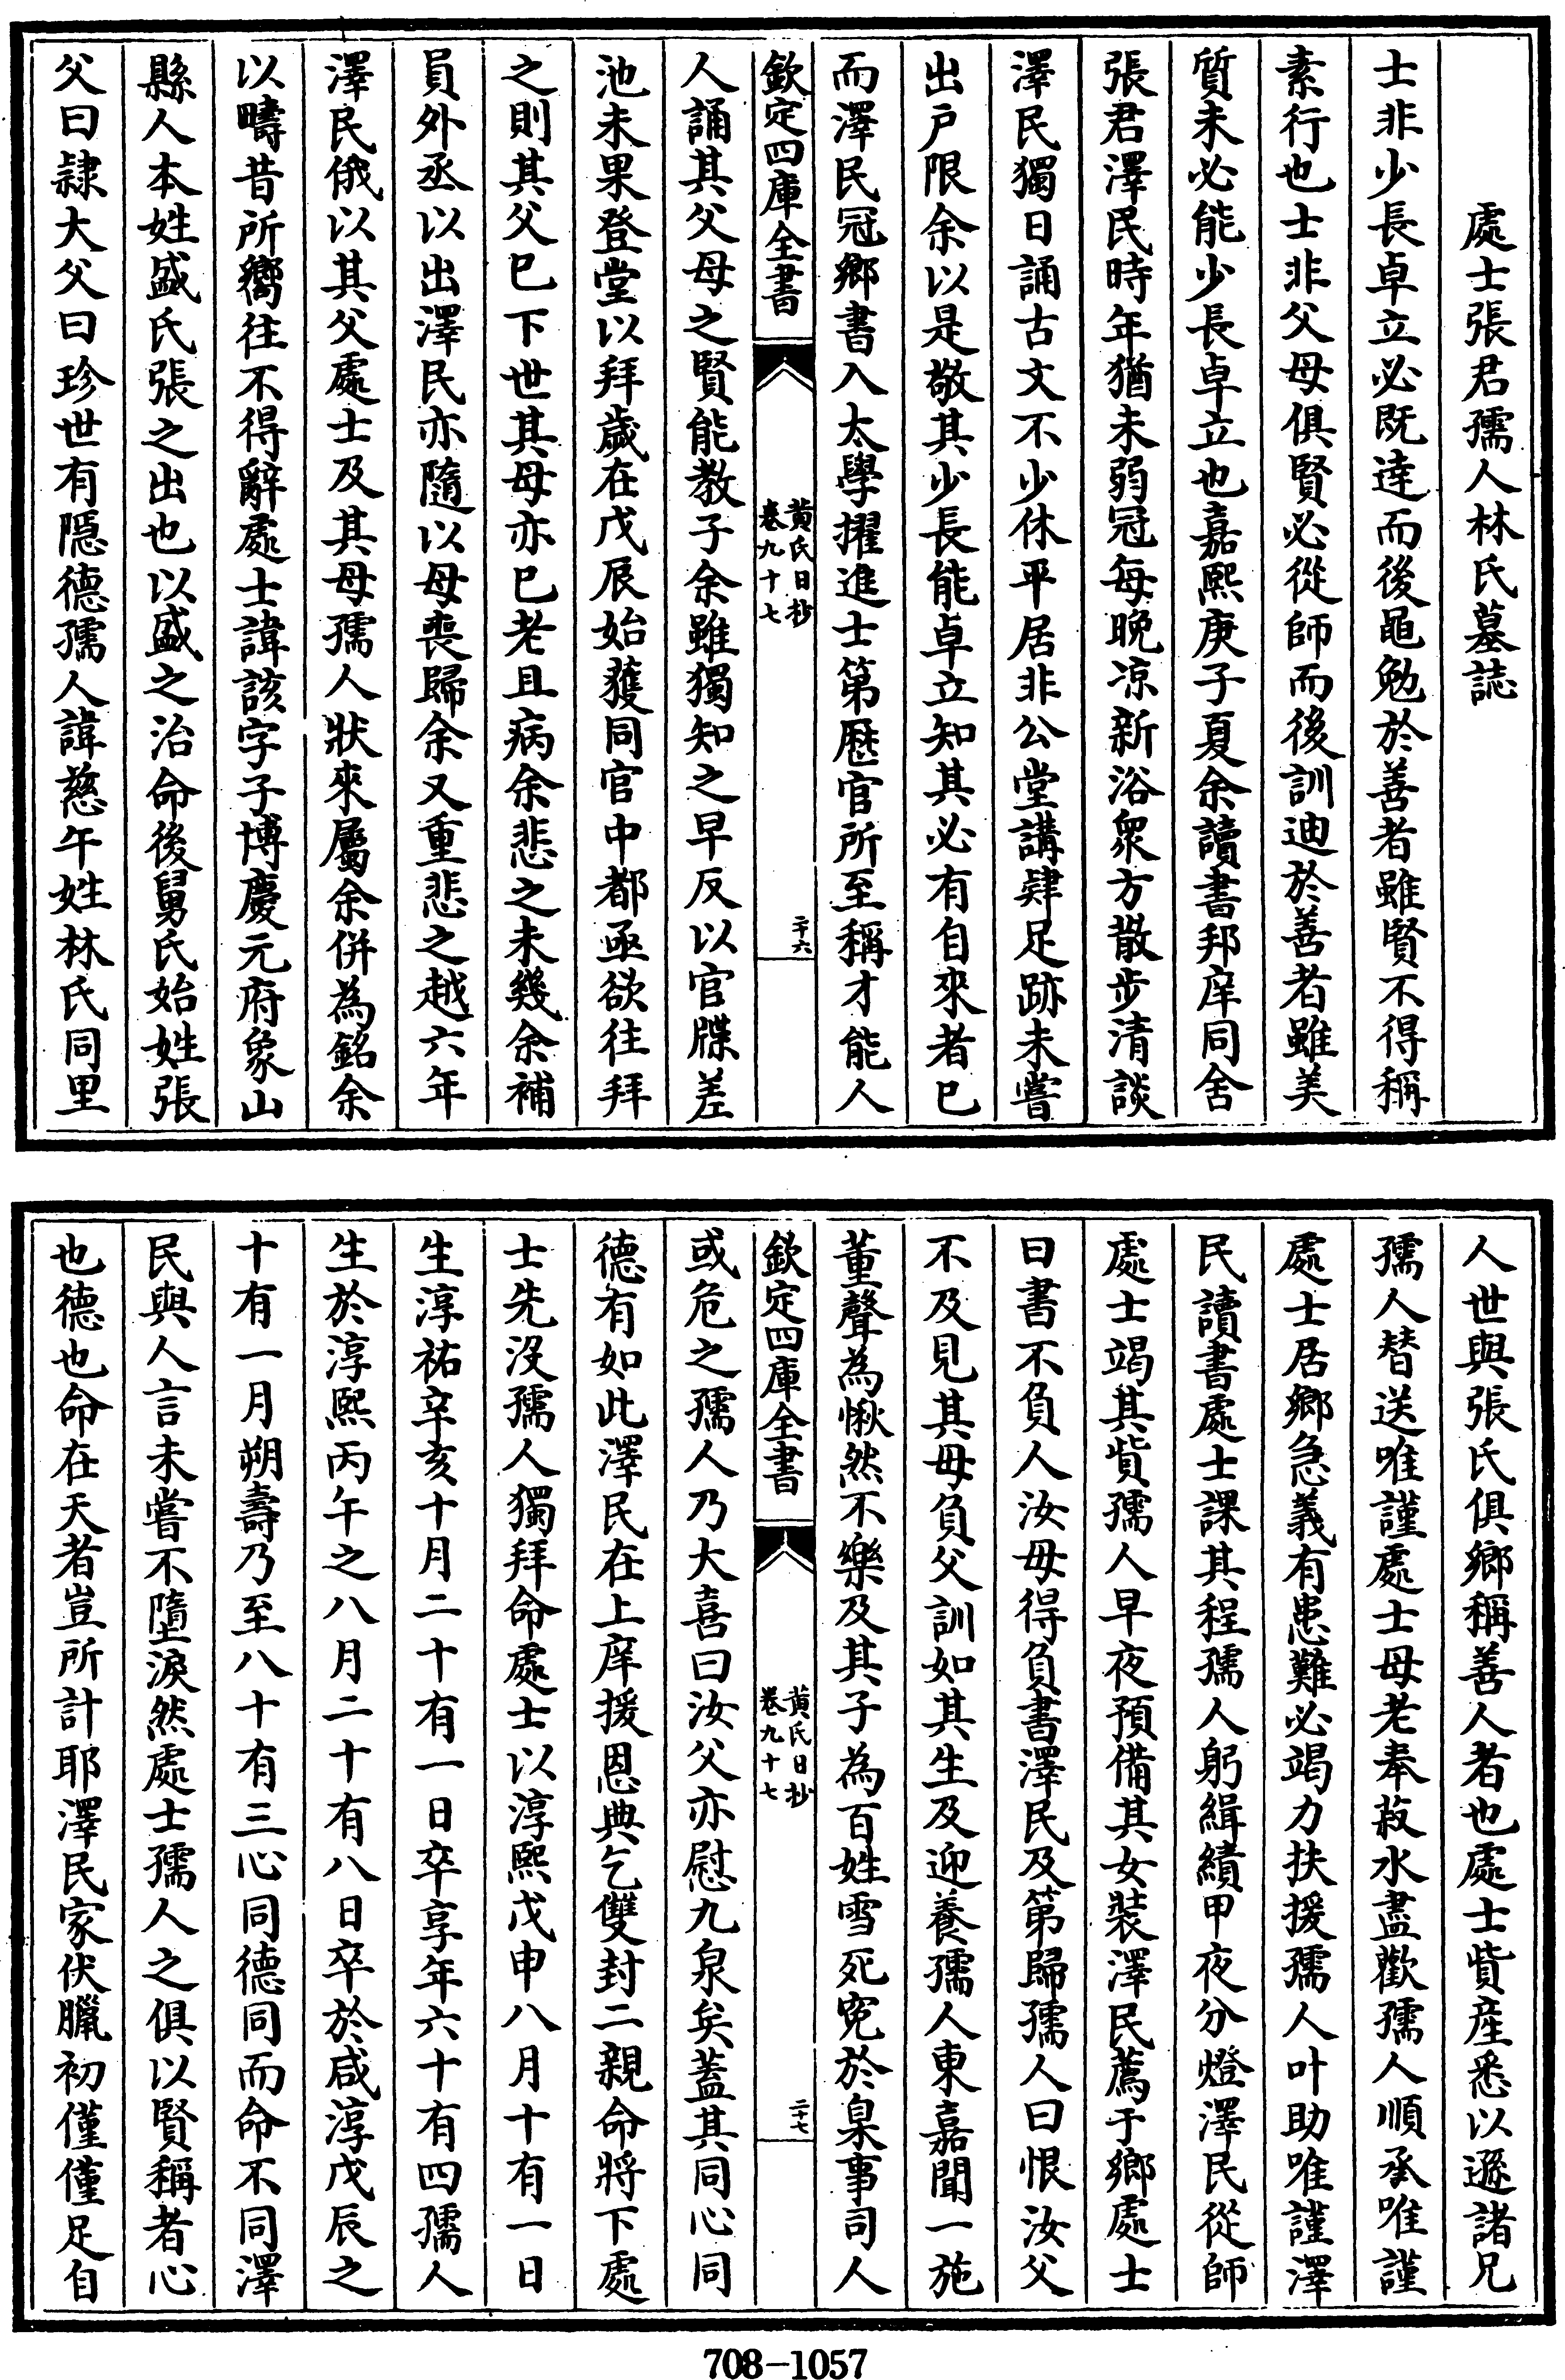 處士張君孺人林氏墓誌
士非少長卓立必既達而後黽勉於善者雖賢不得稱
素行也士非父母俱賢必從師而後訓迪於善者雖美
質未必能少長卓立也嘉熙庚子夏余讀書邦庠同舍
張君澤民時年猶未弱冠每晚凉新浴衆方散步清談
澤民獨日誦古文不少休平居非公堂講肄足跡未嘗
出戶限余以是敬其少長能卓立知其必有自來者已
而澤民冠鄉書入太學擢進士第歷官所至稱才能人
欽定四庫全書
黄氏日抄
卷九十七
二十六
人誦其父母之賢能教子余雖獨知之早反以官牒差
池未果登堂以拜歲在戊辰始獲同官中都亟欲往拜
之則其父已下世其母亦已老且病余悲之未幾余補
員外丞以出澤民亦隨以母喪歸余又重悲之越六年
澤民俄以其父處士及其母孺人狀來屬余併為銘余
以疇昔所嚮往不得辭處士諱該字子博慶元府象山
縣人本姓盛氏張之出也以盛之治命後舅氏始姓張
父曰隸大父曰珍世有隱德孺人諱慈午姓林氏同里
人世與張氏俱鄉稱善人者也處士貲産悉以遜諸兄
孺人替送唯謹處士母老奉菽水盡歡孺人順承唯謹
處士居鄉急義有患難必竭力扶援孺人叶助唯謹澤
民讀書處士課其程孺人躬緝績甲夜分燈澤民從師
處士竭其貲孺人早夜預備其女裝澤民薦于鄉處士
曰書不負人汝毋得負書澤民及第歸孺人曰恨汝父
不及見其毋負父訓如其生及迎養孺人東嘉聞一施
董聲為愀然不樂及其子為百姓雪死寃於臬事司人
欽定四庫全書
黄氏日抄
卷九十七
二十七
或危之孺人乃大喜曰汝父亦慰九泉矣蓋其同心同
德有如此澤民在上庠援恩典乞雙封二親命將下處
士先沒孺人獨拜命處士以淳熙戊申八月十有一日
生淳祐辛亥十月二十有一日卒享年六十有四孺人
生於淳熙丙午之八月二十有八日卒於咸淳戊辰之
十有一月朔壽乃至八十有三心同德同而命不同澤
民與人言未嘗不墮淚然處士孺人之俱以賢稱者心
也德也命在天者豈所計耶澤民家伏臘初僅僅足自
708-1057